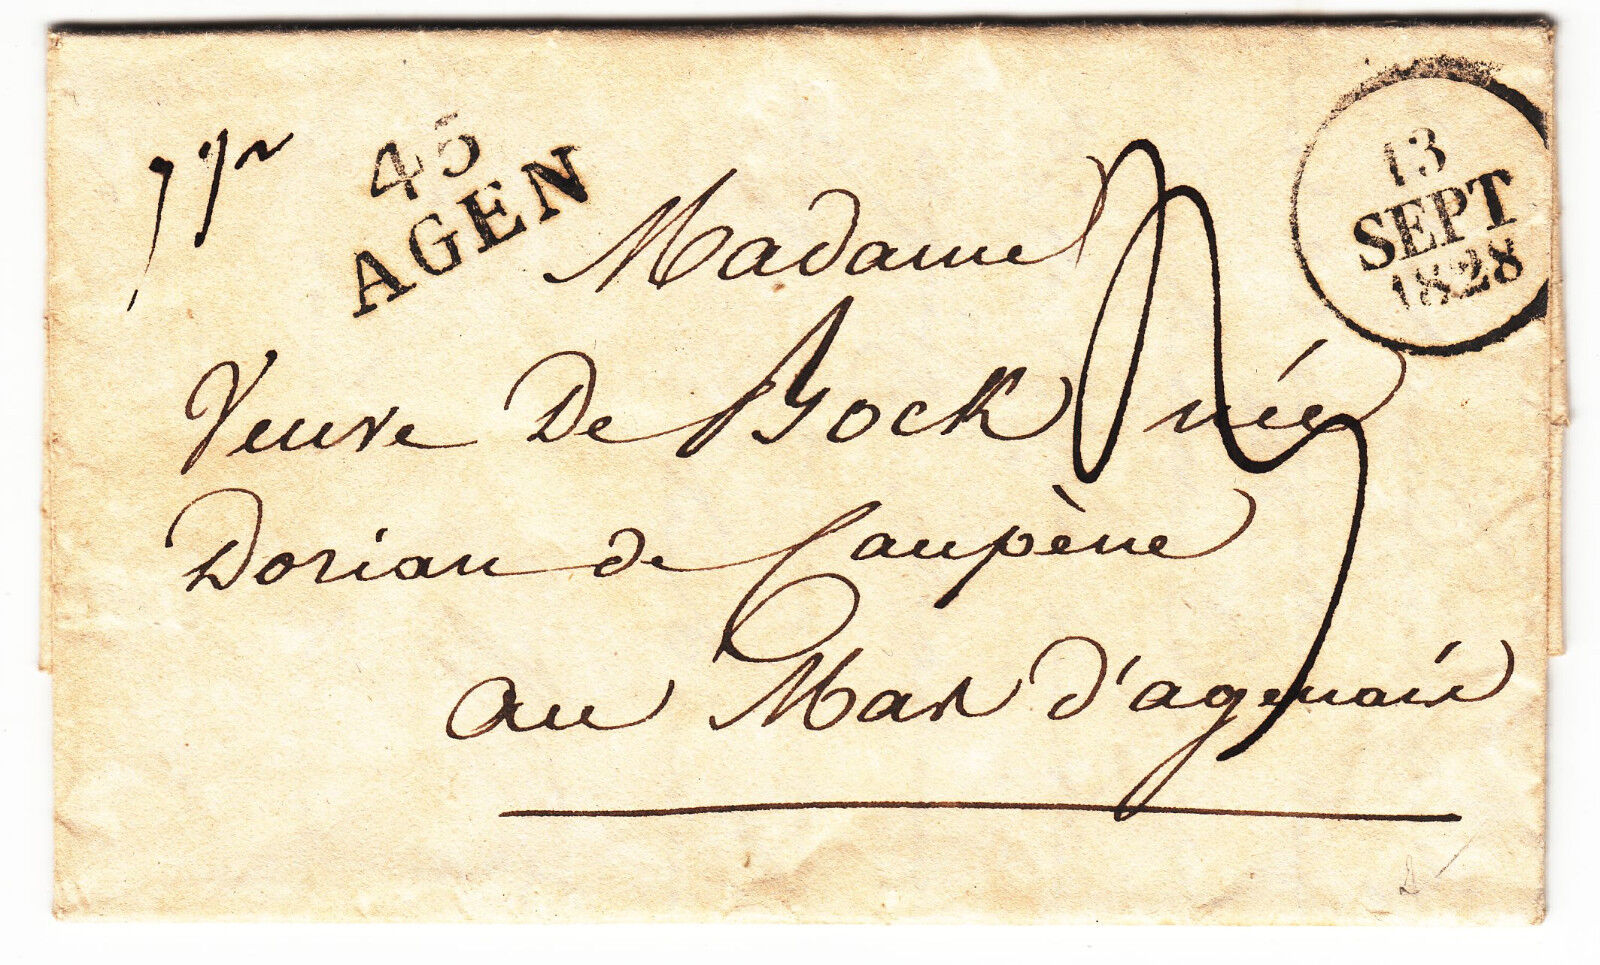 45
AGEN
13
SEPT
1828
Madame
Veuve De Bock née
Dorian de Caupène
au Mas d'agenais